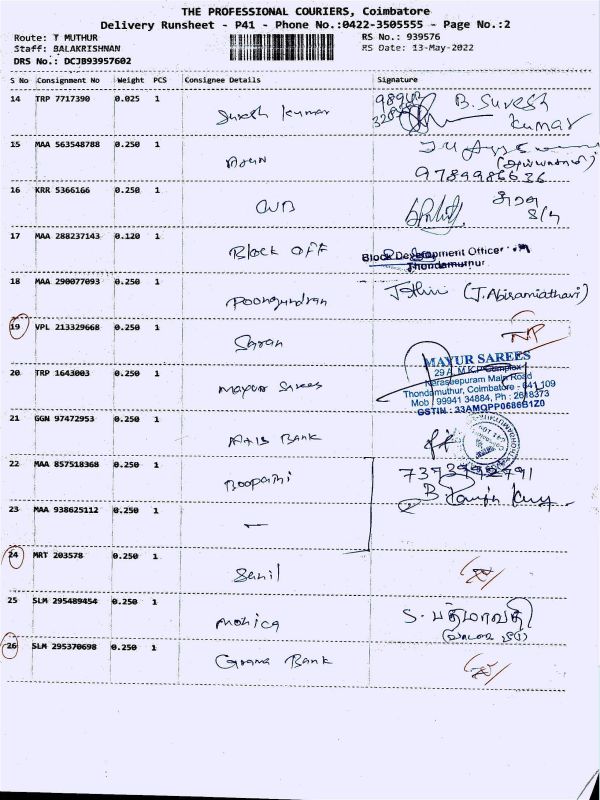 THE PROFESSIONAL COURIERS, Coimbatore
Delivery Runsheet - P41 - Phone No.:0422-3505555 - Page No.:2
Route: T MUTHUR
RS No.: 939576
Staff: BALAKRISHNAN
RS Date: 13-May-2022
DRS No.: DCJB93957602
S No Consignment No Weight PCS Consignee Details Signature
14 TRP 7717390 0.025 1 Suresh Kumar B. Suresh Kumar
15 MAA 563548788 0.250 1 Arun
9789986636
16 KRR 5366166 0.250 1
17 MAA 288237143 0.120 1 Block Off
Block Development Officer
Thondamuthur
18 MAA 290077093 0.250 1 Poongundran Jothi (J. Abiramiathavi)
19 VPL 213329668 0.250 1 Saran
20 TRP 1643003 0.250 1 Mayur Sarees
MAYUR SAREES
29 A, M.K.P Complex
Naraseepuram Main Road
Thondamuthur, Coimbatore - 641 109
Mob : 99941 34884, Ph : 2618373
GSTIN : 33AMQPP0686B1Z0
21 GGN 97472953 0.250 1 Axis Bank
22 MAA 857518368 0.250 1 Boopathi
23 MAA 938625112 0.250 1
24 MRT 203578 0.250 1 Sanil
25 SLM 295489454 0.250 1 Monica S. பத்மாவதி
26 SLM 295370698 0.250 1 Grama Bank